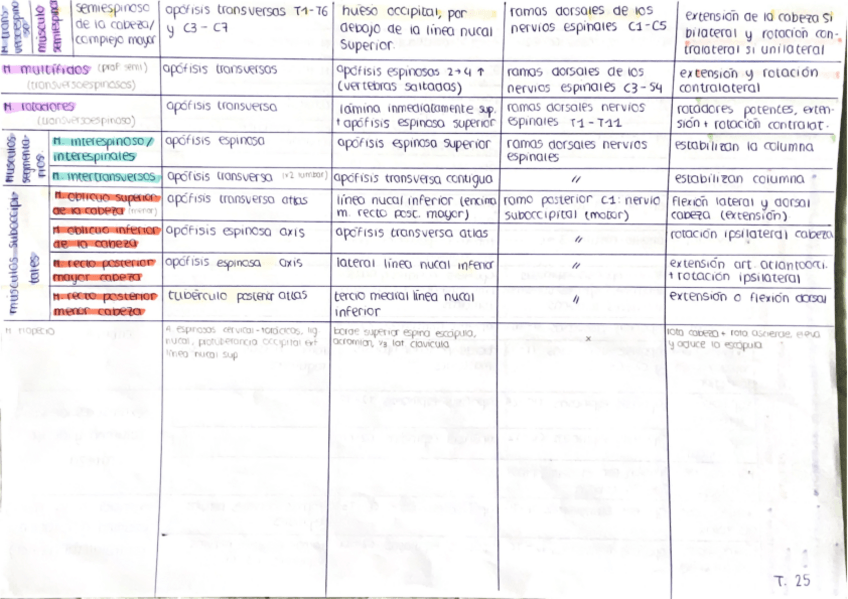 M. transver
verespino
so
músculo
semiespinoso
semiespinoso
de la cabeza/
complejo mayor
apófisis transversas T1-T6
y C3 - C7
hueso occipital, por
debajo de la línea nucal
superior.
ramas dorsales de los
nervios espinales C1-C5
extensión de la cabeza si
bilateral y rotación con-
tralateral si unilateral
M. multífidos (prof semi)
(transversoespinosos)
apófisis transversas
apófisis espinosas 2→4 ↑
(vertebras saltadas)
ramas dorsales de los
nervios espinales C3-S4
extensión y rotación
contralateral
M. rotadores
(transversoespinoso)
apófisis transversa
lámina inmediatamente sup.
+ apófisis espinosa superior
ramas dorsales nervios
espinales T1-T11
rotadores potentes, exten-
sión + rotación contralat.
músculos
segmenta-
rios
M. interespinoso/
interespinales
apófisis espinosa
apófisis espinosa superior
ramas dorsales nervios
espinales
estabilizan la columna
M. intertransversos
apófisis transversa (x2 lumbar)
apófisis transversa contigua
"
estabilizan columna
músculos suboccipi-
tales
M. oblicuo superior
de la cabeza (menor)
apófisis transversa atlas
línea nucal inferior (encima
m. recto post. mayor)
ramo posterior C1: nervio
suboccipital (motor)
flexión lateral y dorsal
cabeza (extensión)
M. oblicuo inferior
de la cabeza
apófisis espinosa axis
apófisis transversa atlas
"
rotación ipsilateral cabeza
M. recto posterior
mayor cabeza
apófisis espinosa axis
lateral línea nucal inferior
"
extensión art. atlantoocci.
+ rotación ipsilateral
M. recto posterior
menor cabeza
tubérculo posterior atlas
tercio medial línea nucal
inferior
"
extensión o flexión dorsal
M. trapecio
A. espinosas cervical-torácicas, lig
nucal, protuberancia occipital ext
línea nucal sup
borde superior espina escápula,
acromion, 1/3 lat clavícula
x
rota cabeza + rota asciende, eleva
y aduce la escápula
T. 25